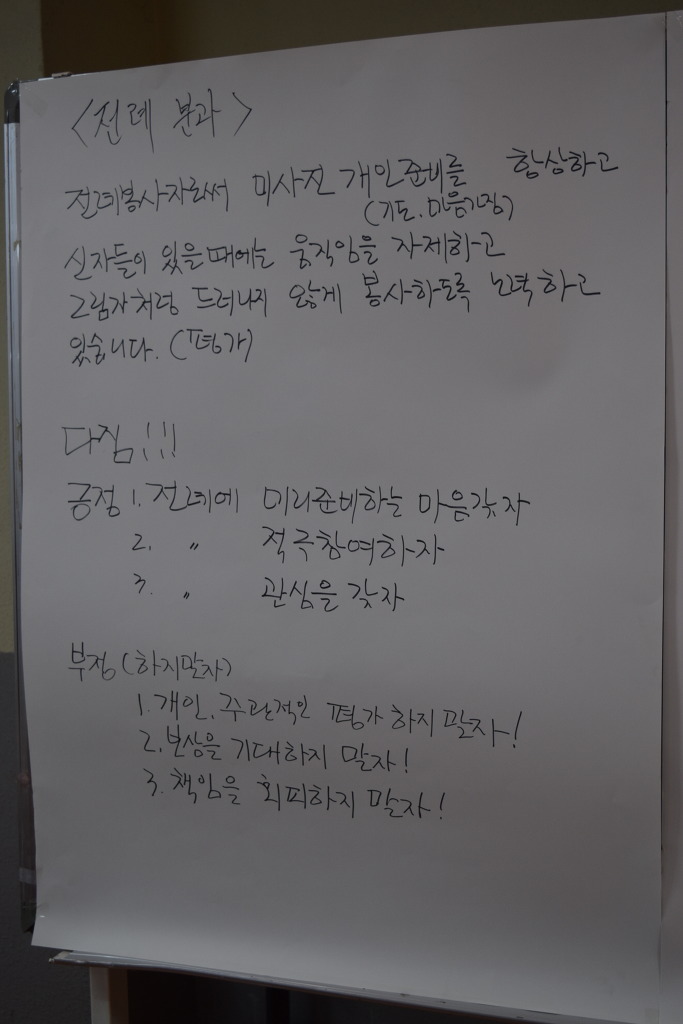 <전례 분과>
전례봉사자로써 미사전 개인준비를 항상하고
(기도, 마음가짐)
신자들이 있을때에는 움직임을 자제하고
그림자처럼 드러나지 않게 봉사하도록 노력하고
있습니다. (평가)
다짐!!!
긍정 1. 전례에 미리준비하는 마음갖자
2. 〃 적극참여하자
3. 〃 관심을 갖자
부정(하지말자)
1. 개인, 주관적인 평가 하지 말자!
2. 보상을 기대하지 말자!
3. 책임을 회피하지 말자!